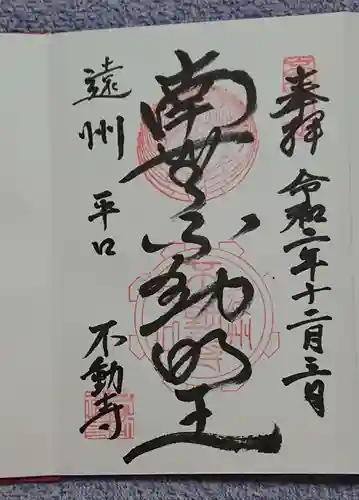 奉拝
令和二年十二月三日
南無不動明王
遠州
平口
不動寺